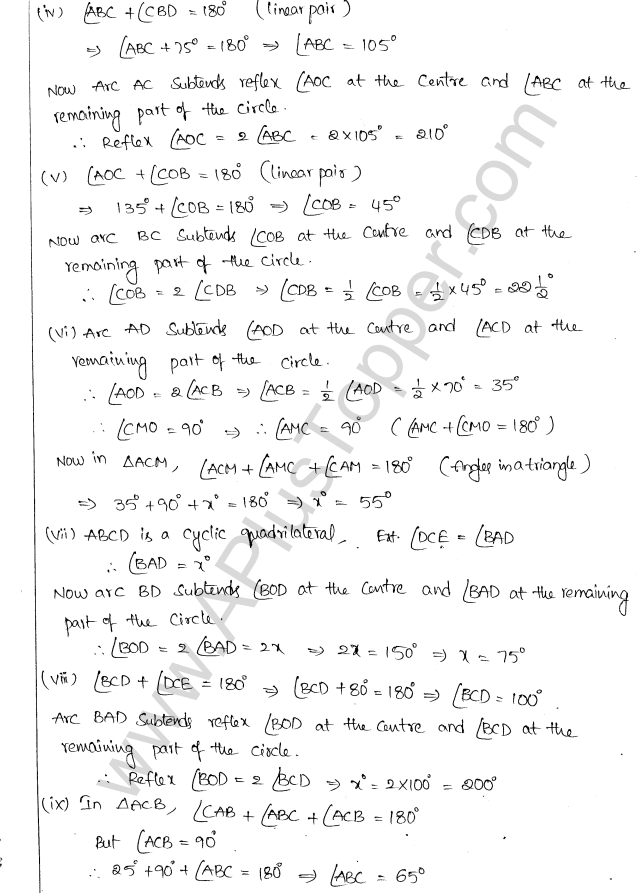 (iv) ∠ABC + ∠CBD = 180° (linear pair)
⇒ ∠ABC + 75° = 180° ⇒ ∠ABC = 105°
Now Arc AC Subtends reflex ∠AOC at the Centre and ∠ABC at the
remaining part of the circle.
∴ Reflex ∠AOC = 2 ∠ABC = 2×105° = 210°
(v) ∠AOC + ∠COB = 180° (linear pair)
⇒ 135° + ∠COB = 180° ⇒ ∠COB = 45°
Now arc BC Subtends ∠COB at the Centre and ∠CDB at the
remaining part of the circle.
∴ ∠COB = 2 ∠CDB ⇒ ∠CDB = 1/2 ∠COB = 1/2 × 45° = 22 1/2°
(vi) Arc AD Subtends ∠AOD at the Centre and ∠ACD at the
remaining part of the circle.
∴ ∠AOD = 2 ∠ACB ⇒ ∠ACB = 1/2 ∠AOD = 1/2 × 70° = 35°
∴ ∠CMO = 90° ⇒ ∴ ∠AMC = 90° (∠AMC + ∠CMO = 180°)
Now in ΔACM, ∠ACM + ∠AMC + ∠CAM = 180° (Angles in a triangle)
⇒ 35° + 90° + x° = 180° ⇒ x° = 55°
(vii) ABCD is a cyclic quadrilateral, Ext. ∠DCE = ∠BAD
∴ ∠BAD = x°
Now arc BD Subtends ∠BOD at the Centre and ∠BAD at the remaining
part of the Circle.
∴ ∠BOD = 2 ∠BAD = 2x ⇒ 2x = 150° ⇒ x = 75°
(viii) ∠BCD + ∠DCE = 180° ⇒ ∠BCD + 80° = 180° ⇒ ∠BCD = 100°
Arc BAD Subtends reflex ∠BOD at the Centre and ∠BCD at the
remaining part of the circle.
∴ Reflex ∠BOD = 2 ∠BCD ⇒ x° = 2×100° = 200°
(ix) In ΔACB, ∠CAB + ∠ABC + ∠ACB = 180°
But ∠ACB = 90°
∴ 25° + 90° + ∠ABC = 180° ⇒ ∠ABC = 65°
www.APlusTopper.com